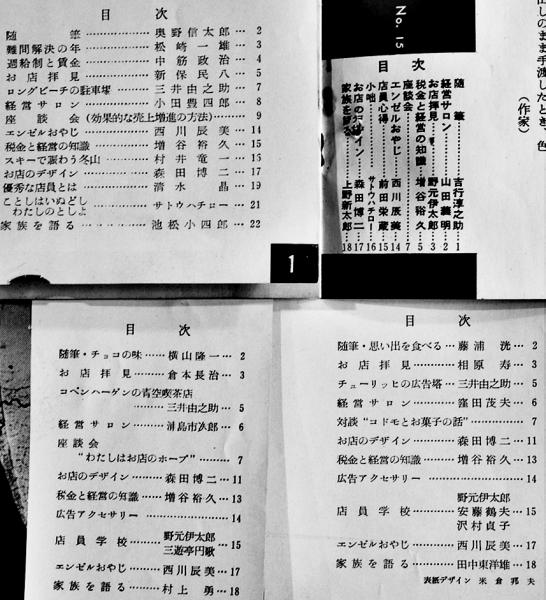 目次
随筆……奥野信太郎…2
難問解決の年……松崎一雄…3
週給制と賃金……中筋政治…4
お店拝見……新保民八…5
ロングビーチの駐車場……三井由之助…7
経営サロン……小田豊四郎…8
座談会(効果的な売上増進の方法)……9
エンゼルおやじ……西川辰美…14
税金と経営の知識……増谷裕久…15
スキーで賑わう冬山……村井竜一…13
お店のデザイン……森田博二…17
優秀な店員とは……清水晶…19
ことしはいぬどし
わたしのとしよ……サトウハチロー…21
家族を語る……池松小四郎…22
1
No. 15
目次
随筆……吉行淳之助…1
経営サロン……山田義明…2
お店拝見……野元伊太郎…3
税金と経営の知識…増谷裕久…5
座談会……7
エンゼルおやじ……西川辰美…14
店員心得……前田栄蔵…15
小咄……サトウハチロー…16
お店のデザイン……森田博二…17
家族を語る……上野新太郎…18
のまま手渡したとき、色
(作家)
目次
随筆・チョコの味……横山隆一…2
お店拝見……倉本長治…3
コペンハーゲンの青空喫茶店
……三井由之助…5
経営サロン……浦島市次郎…6
座談会
“わたしはお店のホープ”……7
お店のデザイン……森田博二…11
税金と経営の知識……増谷裕久…13
広告アクセサリー……14
店員学校……野元伊太郎
三遊亭円歌…15
エンゼルおやじ……西川辰美…17
家族を語る……村上勇…18
目次
随筆・思い出を食べる…藤浦洸…2
お店拝見……相原寿…3
チューリッヒの広告塔…三井由之助…5
経営サロン……窪田茂夫…6
対談“コドモとお菓子の話”……7
お店のデザイン……森田博二…11
税金と経営の知識……増谷裕久…13
広告アクセサリー……14
野元伊太郎
店員学校……安藤鶴夫…15
沢村貞子
エンゼルおやじ……西川辰美…17
家族を語る……田中東洋雄…18
表紙デザイン 米倉邦夫